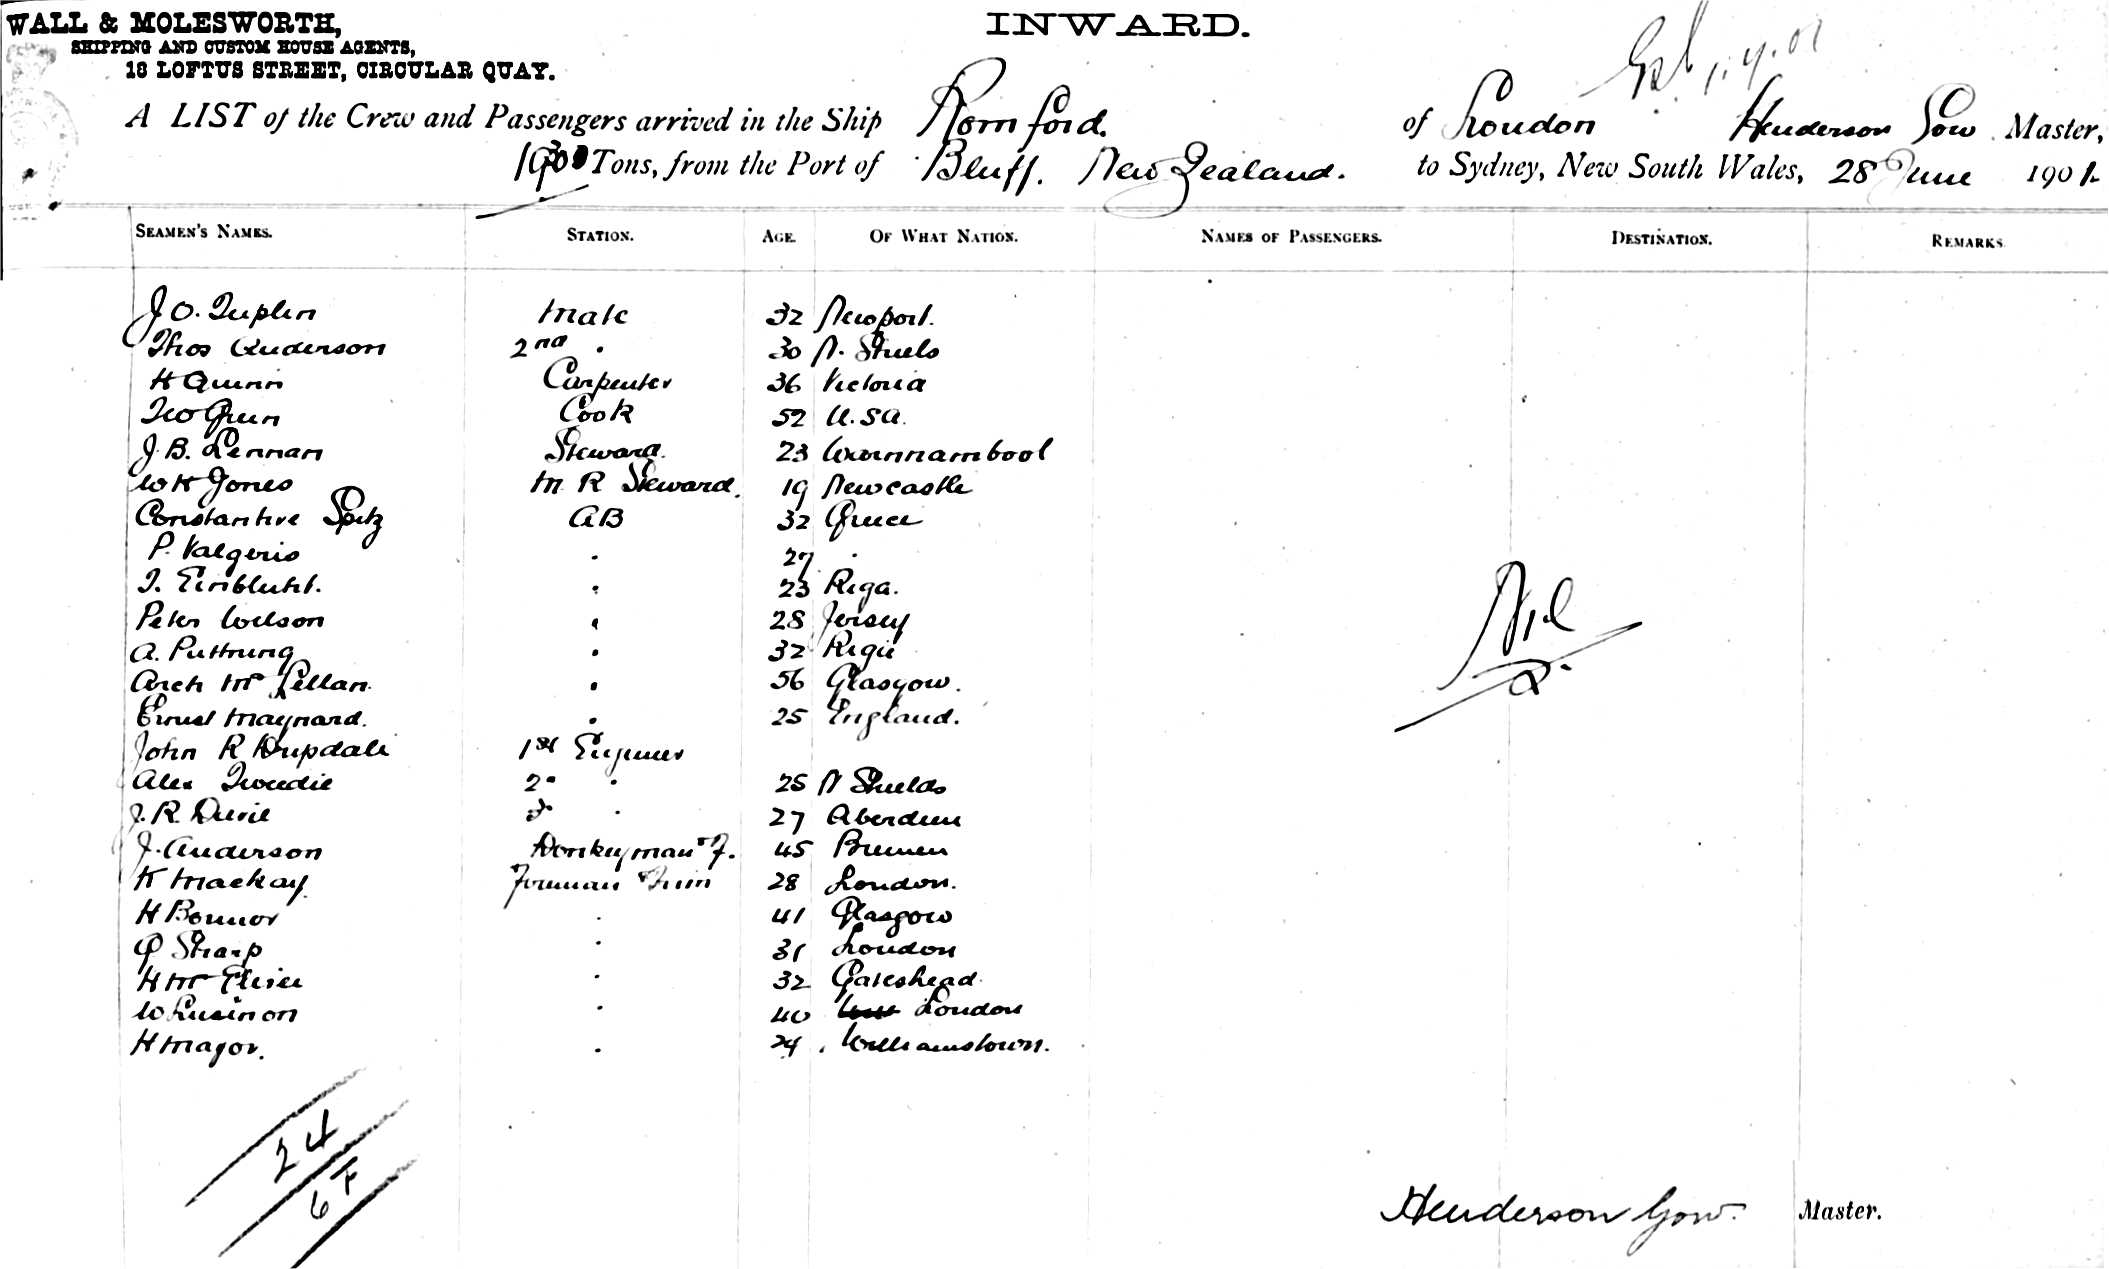 WALL & MOLESWORTH,
SHIPPING AND CUSTOM HOUSE AGENTS,
18 LOFTUS STREET, CIRCULAR QUAY.
INWARD.
A LIST of the Crew and Passengers arrived in the Ship Romford. of London Henderson Gow Master,
Tons, from the Port of Bluff. New Zealand. to Sydney, New South Wales, 28 June 1901
SEAMEN'S NAMES. STATION. AGE. OF WHAT NATION. NAMES OF PASSENGERS. DESTINATION. REMARKS
J O. Tuplin Mate 32 Newport.
Thos Anderson 2nd . 30 N. Shiels
H Quinn Carpenter 36 Victoria
Geo Green Cook 52 U.S.A.
J. B. Lennan Steward. 23 Warrnambool
W H Jones M R Steward. 19 Newcastle
Constantive Spitz AB 32 Greece
P. Valgeris . 27 .
. 23 Riga.
Peter Wilson . 28 Jersey
A. Puttrung . 32
Arch McLellan. . 56 Glasgow.
Ernest Maynard. . 25 England.
John R Drupdale 1st Engineer
Alex Tweedie 2" . 25 N Shields
J. R. . 27 Aberdeen
J. Anderson Donkeyman F. 45 Bremen
H Mackay Foreman 28 London.
H Bonnor . 41 Glasgow
G Sharp . 31 London
H Mc . 32 Gateshead
W . 40 London
H Magor. . 24 Williamstown.
Nil
24
6 F
Henderson Gow. Master.